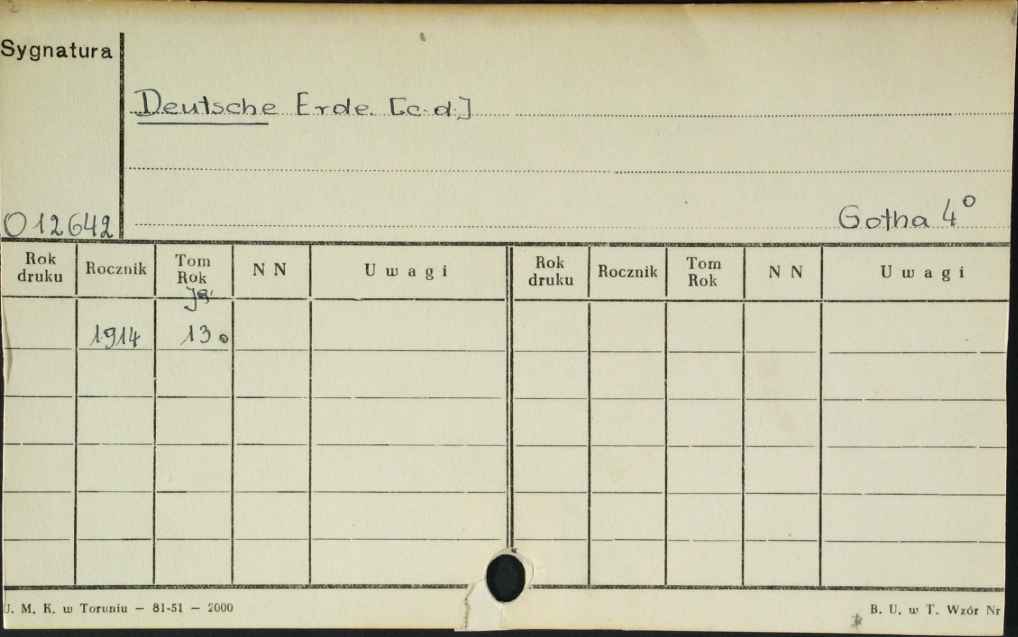 Sygnatura
Deutsche Erde. [c.d.]
O 12642
Gotha 4°
Rok druku Rocznik Tom Rok N N Uwagi Rok druku Rocznik Tom Rok N N Uwagi
Jg.
1914 13.
U. M. K. w Toruniu — 81-51 — 2000
B. U. w T. Wzór Nr